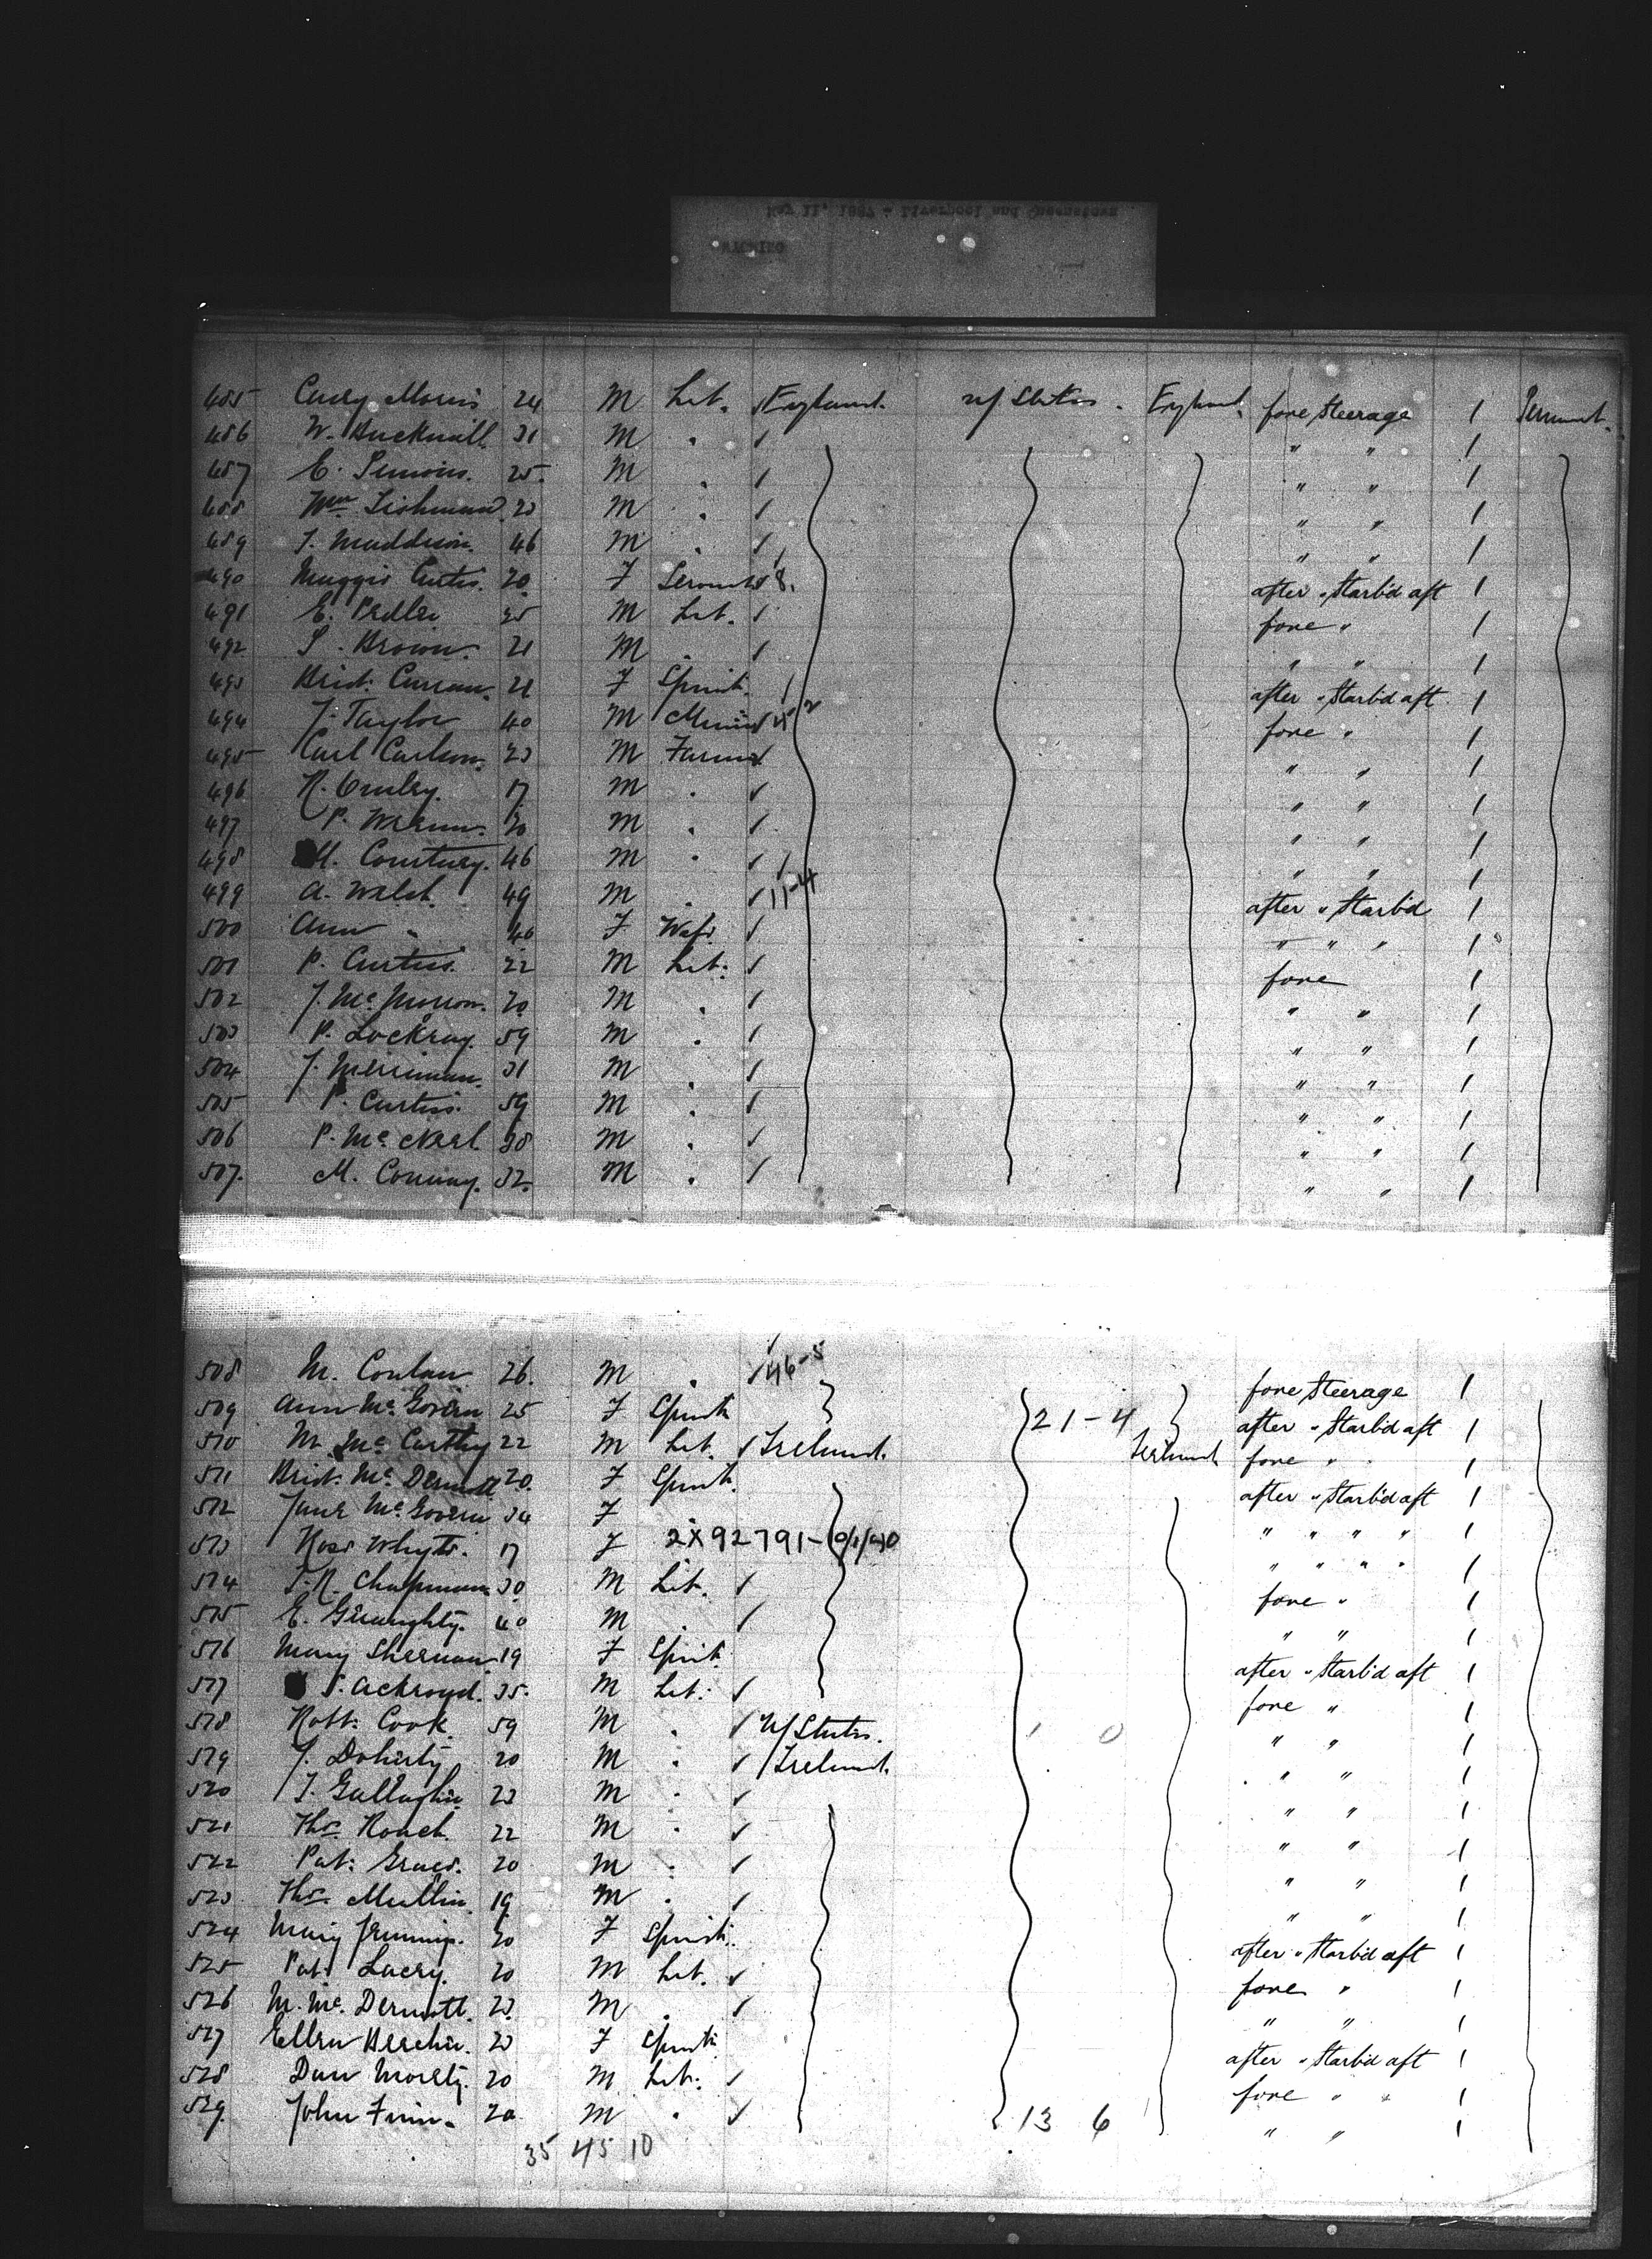 May 11, 1887 - Liverpool and Queenstown
WYOMING
485 Morris 24 M Lab. England. U/States. England. fore Steerage 1
486 W. Bucknall 31 M . " " 1
487 E. 25. M . " " 1
488 Wm 23 M . " " 1
489 T. Maddison. 46 M . " " 1
490 Maggie Curtis. 20. F 8. after " Starb'd aft 1
491 E. Pedler 25 M Lab. fore " 1
492 S. Brown. 21 M . " " 1
493 Brid. Curran. 21 F Spinst. after " Starb'd aft 1
494 J. Taylor 40 M Miner 45-2 fore " 1
495 Carl Carlson. 23 M Farmer " " 1
496 17 M . " " 1
497 P. 20 M . " " 1
498 M. Courtney. 46 M . " " 1
499 A. Welsh. 49 M . 11-4 after " Starb'd 1
500 Ann " 40 F Wife " " " 1
501 P. Curtis. 22 M Lab. fore 1
502 J. Mc 20. M . " " 1
503 P. Lockray. 59 M . " " 1
504 J. Merriman. 31 M . " " 1
505 P. Curtis. 59 M . " " 1
506 P. Mc 38 M . " " 1
507. M. 32. M . " " 1
508 M. Conlan 26. M . 46-5 fore Steerage 1
509 Ann McGovern 25 F Spinst. 21-4 after " Starb'd aft 1
510 M. McCarthy 22 M Lab. Ireland. Ireland. fore " 1
511 Brid. McDermott 20. F Spinst. after " Starb'd aft 1
512 Jane McGovern 34 F " " " " 1
513 Rose Whyte. 17 F 2X92791- " " " " 1
514 Chapman 30 M Lab. fore " 1
515 E. 40 M . " " 1
516 Mary 19 F Spinst. after " Starb'd aft 1
517 S. Ackroyd. 35. M Lab. fore " 1
518 Robt. Cook 59 M . U/States. 1 0 " " 1
519 J. Doherty 20 M . Ireland. " " 1
520 J. Gallagher 23 M . " " 1
521 Thos. Roach. 22 M . " " 1
522 Pat. Grace. 20 M . " " 1
523 Thos. Mullin 19 M . " " 1
524 Mary Jennings. 20 F Spinst. after " Starb'd aft 1
525 Pat. Lacey. 20 M Lab. fore " 1
526 M. McDermott. 23 M . " " 1
527 Ellen 23 F Spinst. after " Starb'd aft 1
528 Dan 20 M Lab. fore " 1
529. John 20 M . 13 6 " " 1
35 45 10